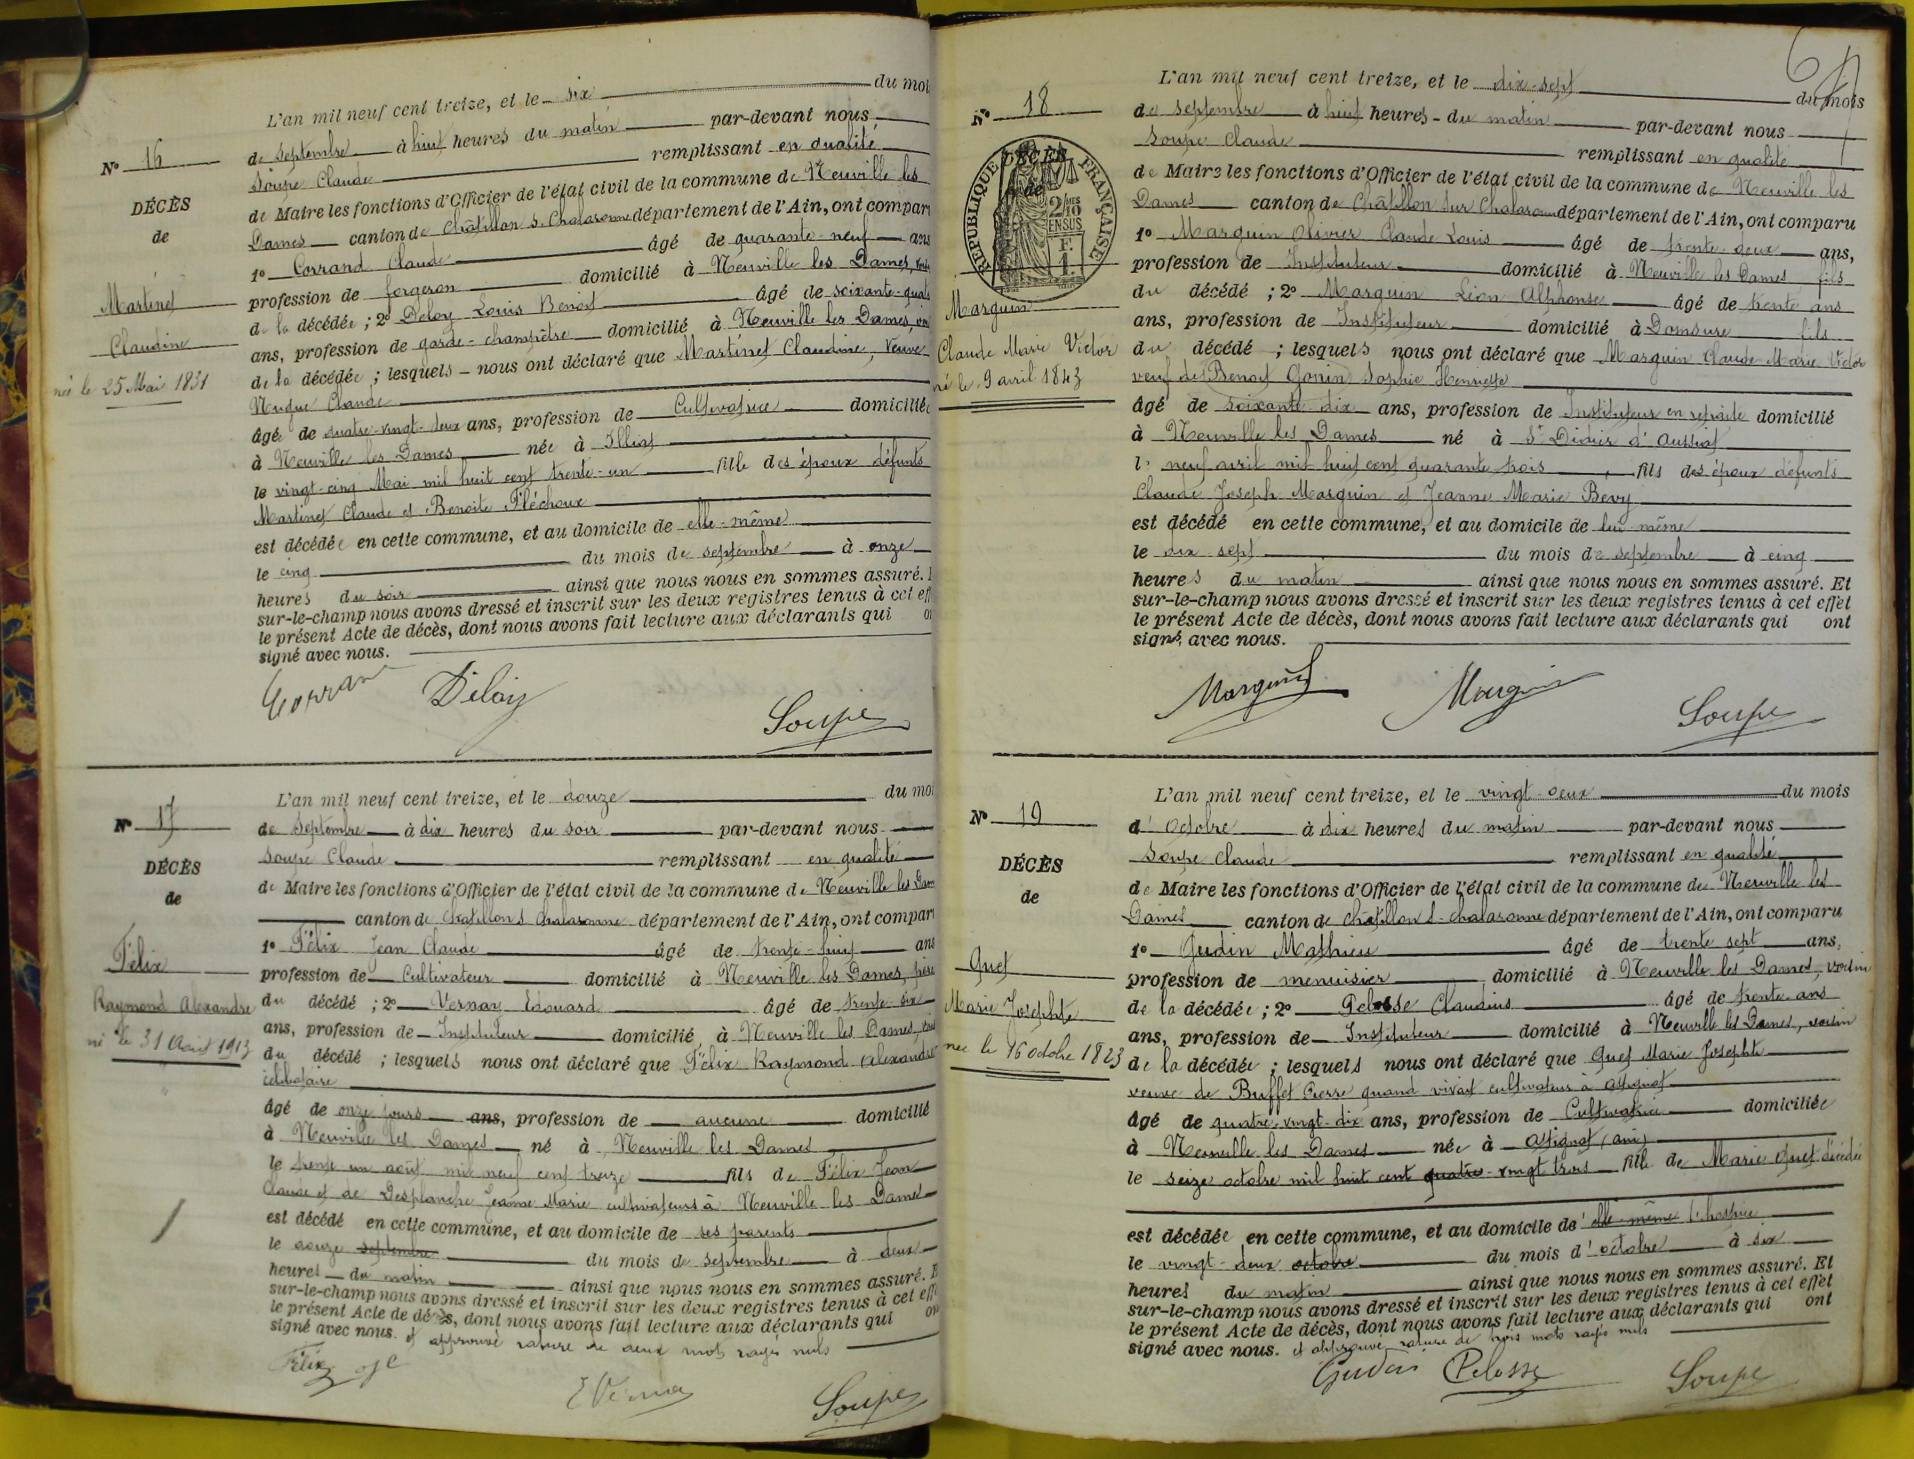 N° 16
DÉCÈS
de
Martinet
Claudine
née le 25 Mai 1831
L'an mil neuf cent treize, et le six du moi
de septembre à huit heures du matin par-devant nous
Soupe Claude remplissant en qualité
de Maire les fonctions d'Officier de l'état civil de la commune de Neuville les
Dames canton de Châtillon s. Chalaronne département de l'Ain, ont compar
1° Corrand Claude âgé de quarante-neuf ans
profession de forgeron domicilié à Neuville les Dames,
de la décédée ; 2° Deloy Louis Benoit âgé de soixante-quat
ans, profession de garde-champêtre domicilié à Neuville les Dames,
de la décédée ; lesquels nous ont déclaré que Martinet Claudine, Veuve
Nugue Claude
âgée de quatre-vingt-deux ans, profession de Cultivatrice domiciliée
à Neuville les Dames née à Illiat
le vingt-cinq Mai mil huit cent trente-un fille des époux défunts
Martinet Claude et Benoite Fléchoux
est décédée en cette commune, et au domicile de elle-même
le cinq du mois de septembre à onze
heures du soir ainsi que nous nous en sommes assuré.
sur-le-champ nous avons dressé et inscrit sur les deux registres tenus à cet eff
le présent Acte de décès, dont nous avons fait lecture aux déclarants qui o
signé avec nous.
Corran Deloy
Soupe
N° 17
DÉCÈS
de
Félix
Raymond Alexandre
né le 31 Août 1913
L'an mil neuf cent treize, et le douze du moi
de septembre à dix heures du soir par-devant nous
Soupe Claude remplissant en qualité
de Maire les fonctions d'Officier de l'état civil de la commune de Neuville les Dam
canton de Chatillon s Chalaronne département de l'Ain, ont compar
1° Félix Jean Claude âgé de trente-huit ans
profession de Cultivateur domicilié à Neuville les Dames, père
du décédé ; 2° Vernay Edouard âgé de trente-six
ans, profession de Instituteur domicilié à Neuville les Dames,
du décédé ; lesquels nous ont déclaré que Félix Raymond Alexandre
célibataire
âgé de onze jours ans, profession de aucune domicilié
à Neuville les Dames né à Neuville les Dames
le trente un août mil neuf cent treize fils de Félix Jean
Claude et de Desplanche Jeanne Marie cultivateurs à Neuville les Dames
est décédé en cette commune, et au domicile de ses parents
le douze septembre du mois de septembre à deux
heures du matin ainsi que nous nous en sommes assuré. E
sur-le-champ nous avons dressé et inscrit sur les deux registres tenus à cet eff
le présent Acte de décès, dont nous avons fait lecture aux déclarants qui on
signé avec nous. et approuvé rature de deux mots rayés nuls
Félix J C
E Vernay
Soupe
N° 18
RÉPUBLIQUE FRANÇAISE
DÉCÈS
de
2/10 EN SUS
1 F.
Marguin
Claude Marie Victor
né le 9 avril 1843
L'an mil neuf cent treize, et le dix-sept du mois
de septembre à huit heures du matin par-devant nous
Soupe Claude remplissant en qualité
de Maire les fonctions d'Officier de l'état civil de la commune de Neuville les
Dames canton de Châtillon sur Chalaronne département de l'Ain, ont comparu
1° Marguin Olivier Claude Louis âgé de trente-deux ans,
profession de Instituteur domicilié à Neuville les Dames fils
du décédé ; 2° Marguin Léon Alphonse âgé de trente ans
ans, profession de Instituteur domicilié à Domsure fils
du décédé ; lesquels nous ont déclaré que Marguin Claude Marie Victor
veuf de Benoit Gonin Sophie Henriette
âgé de soixante-dix ans, profession de Instituteur en retraite domicilié
à Neuville les Dames né à St Didier d'Aussiat
le neuf avril mil huit cent quarante trois fils des époux défunts
Claude Joseph Marguin et Jeanne Marie Bevy
est décédé en cette commune, et au domicile de lui-même
le dix sept du mois de septembre à cinq
heures du matin ainsi que nous nous en sommes assuré. Et
sur-le-champ nous avons dressé et inscrit sur les deux registres tenus à cet effet
le présent Acte de décès, dont nous avons fait lecture aux déclarants qui ont
signé avec nous.
Marguin Marguin
Soupe
N° 19
DÉCÈS
de
Guet
Marie Josephte
née le 16 octobre 1823
L'an mil neuf cent treize, et le vingt-deux du mois
d'octobre à dix heures du matin par-devant nous
Soupe Claude remplissant en qualité
de Maire les fonctions d'Officier de l'état civil de la commune de Neuville les
Dames canton de Chatillon s. Chalaronne département de l'Ain, ont comparu
1° Gudin Mathieu âgé de trente sept ans,
profession de menuisier domicilié à Neuville les Dames, voisin
de la décédée ; 2° Pelosse Claudius âgé de trente ans
ans, profession de Instituteur domicilié à Neuville les Dames, voisin
de la décédée ; lesquels nous ont déclaré que Guet Marie Josephte
veuve de Buffet Pierre quand vivait cultivateur à Attignat
âgé de quatre-vingt-dix ans, profession de Cultivatrice domiciliée
à Neuville les Dames née à Attignat (ain)
le seize octobre mil huit cent quatre-vingt trois fille de Marie Guet décédée
est décédée en cette commune, et au domicile de elle-même l'hospice
le vingt-deux octobre du mois d'octobre à six
heures du matin ainsi que nous nous en sommes assuré. Et
sur-le-champ nous avons dressé et inscrit sur les deux registres tenus à cet effet
le présent Acte de décès, dont nous avons fait lecture aux déclarants qui ont
signé avec nous. et approuvé rature de trois mots rayés nuls
Gudin Pelosse
Soupe